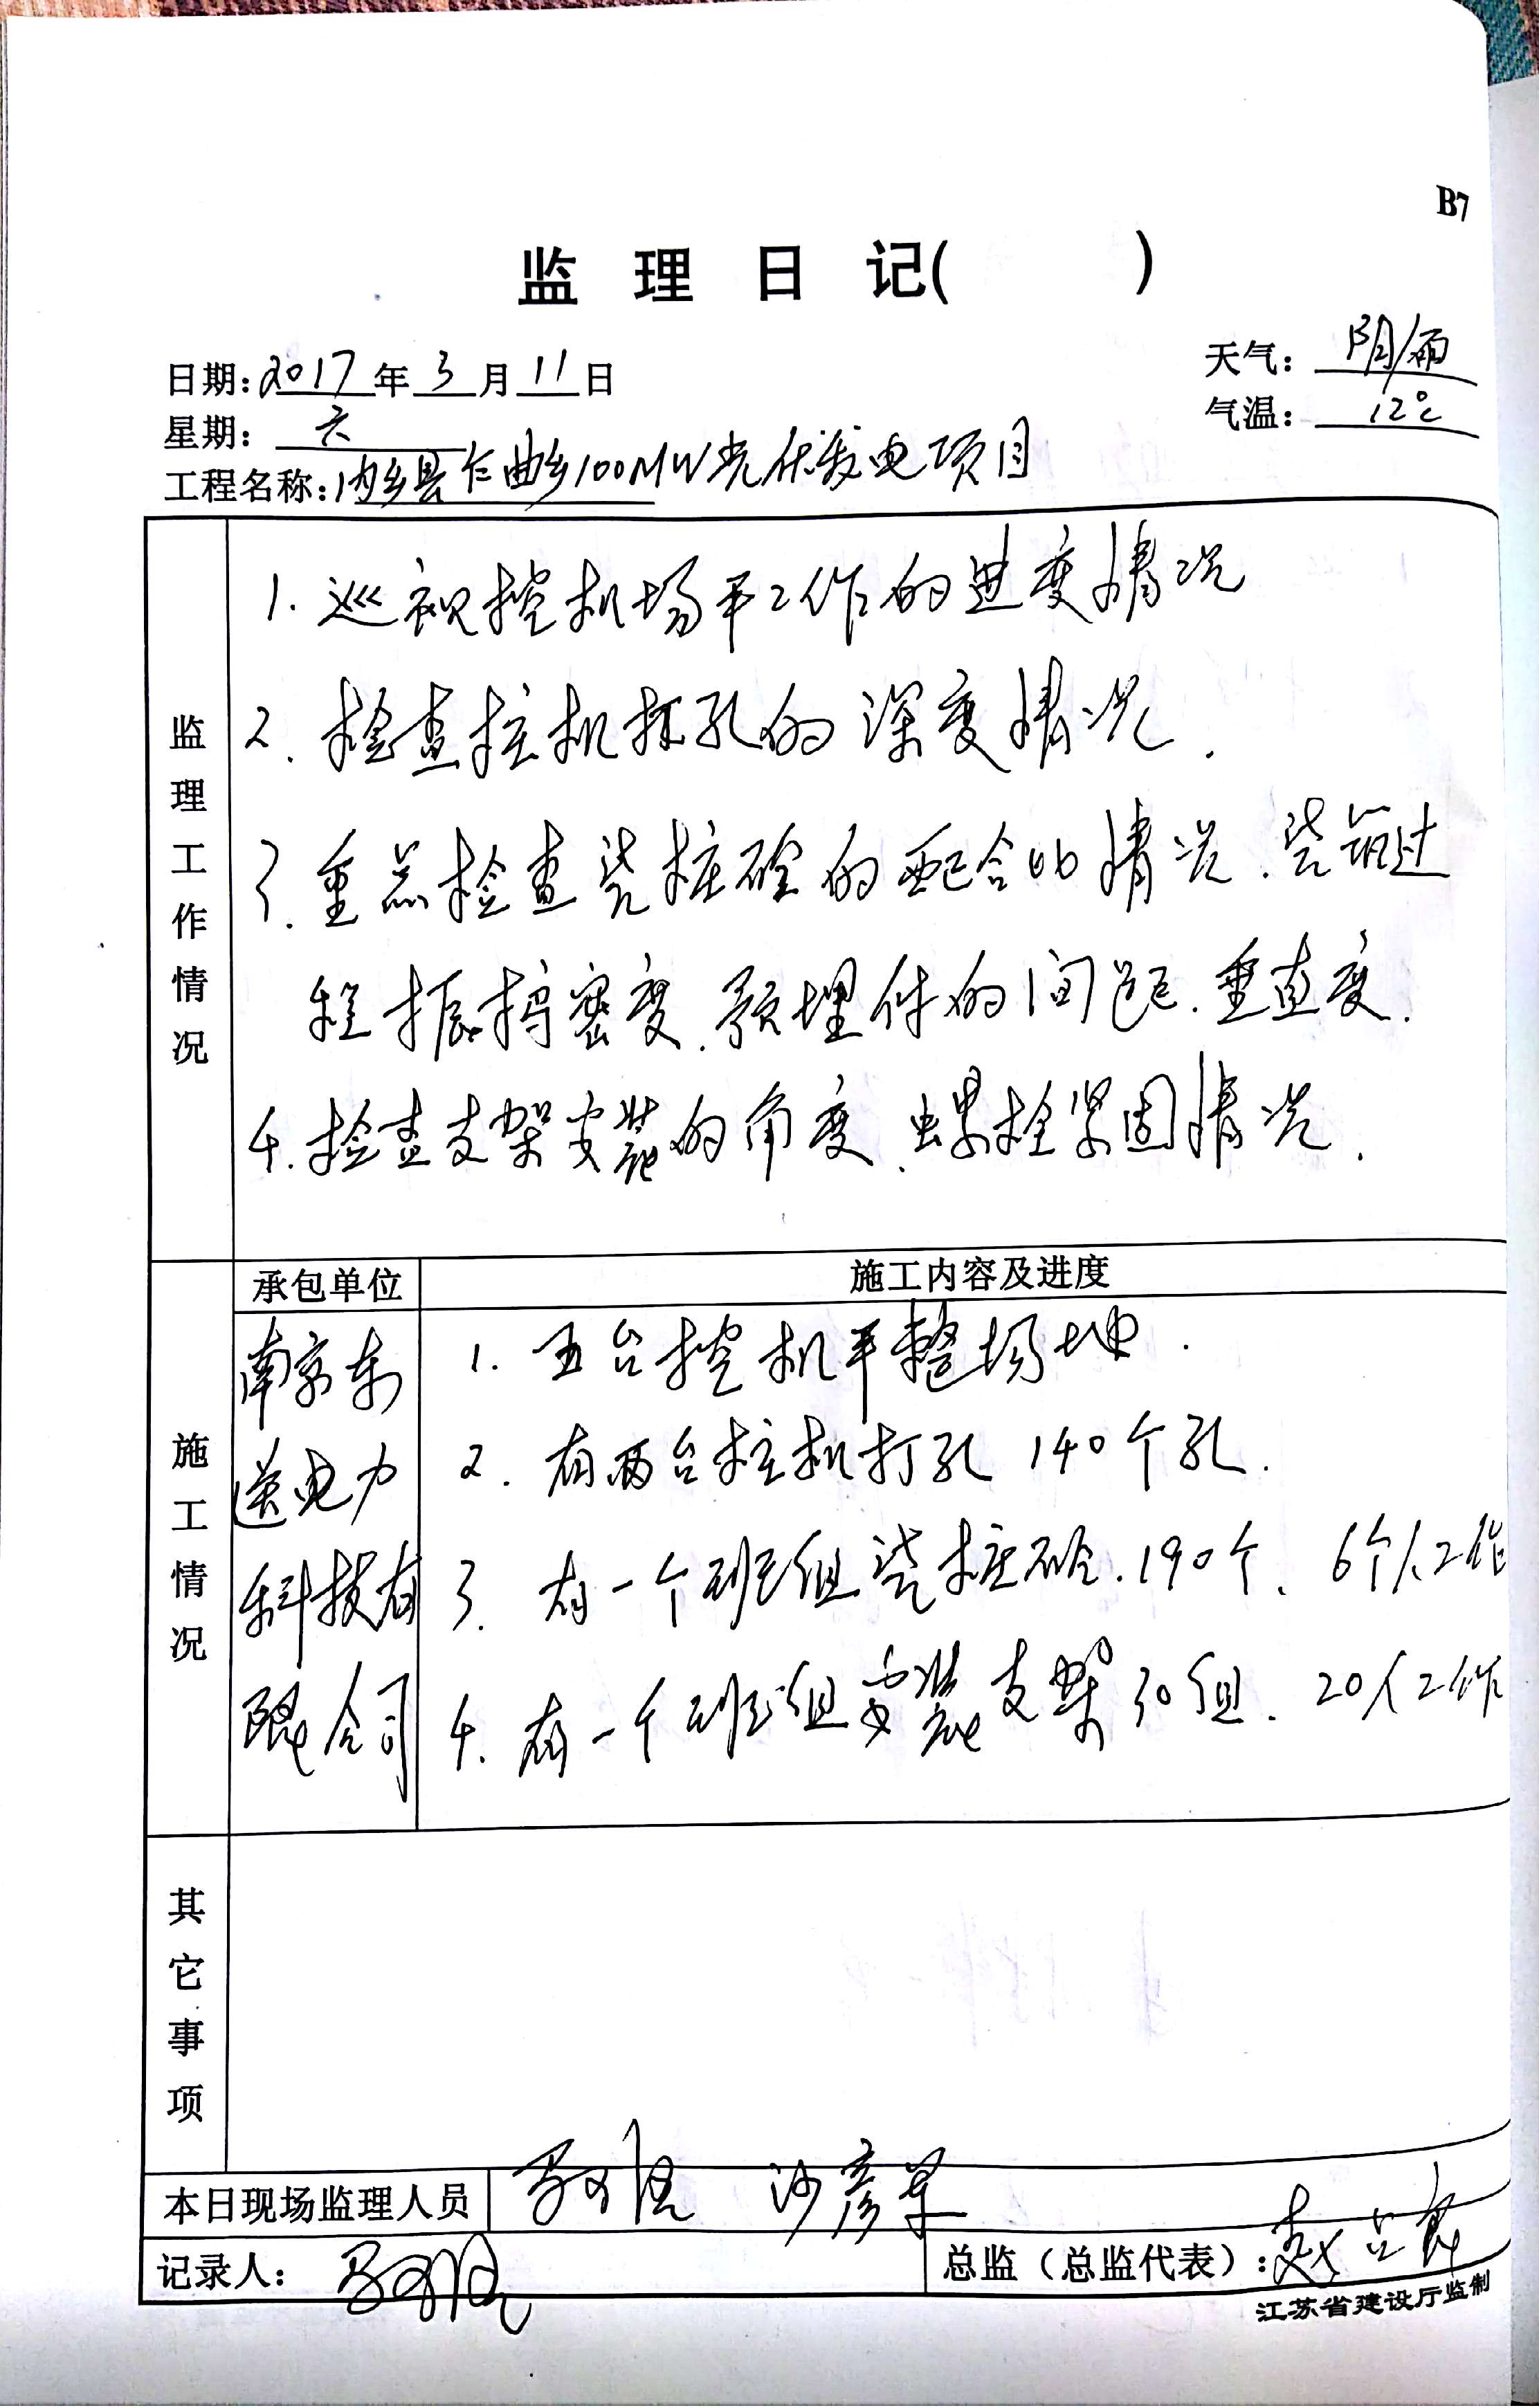 B7
监理日记( )
日期:2017年3月11日
天气: 阴/雨
星期: 六
气温: 12℃
工程名称:内乡县仁曲乡100MW光伏发电项目
监理工作情况
1. 巡视挖机场平工作的进度情况
2. 检查桩机打孔的深度情况.
3. 重点检查浇桩砼的配合比情况.浇筑过
程振捣密度.预埋件的间距.垂直度.
4. 检查支架安装的角度.螺栓紧固情况.
承包单位
施工内容及进度
施工情况
南京东
送电力
科技有
限公司
1. 五台挖机平整场地.
2. 有两台桩机打孔 140个孔.
3. 有一个班组浇桩砼.190个. 6个人工作
4. 有一个班组安装支架30组. 20人工作
其它事项
本日现场监理人员
沙彦军
记录人:
总监（总监代表）:赵
江苏省建设厅监制